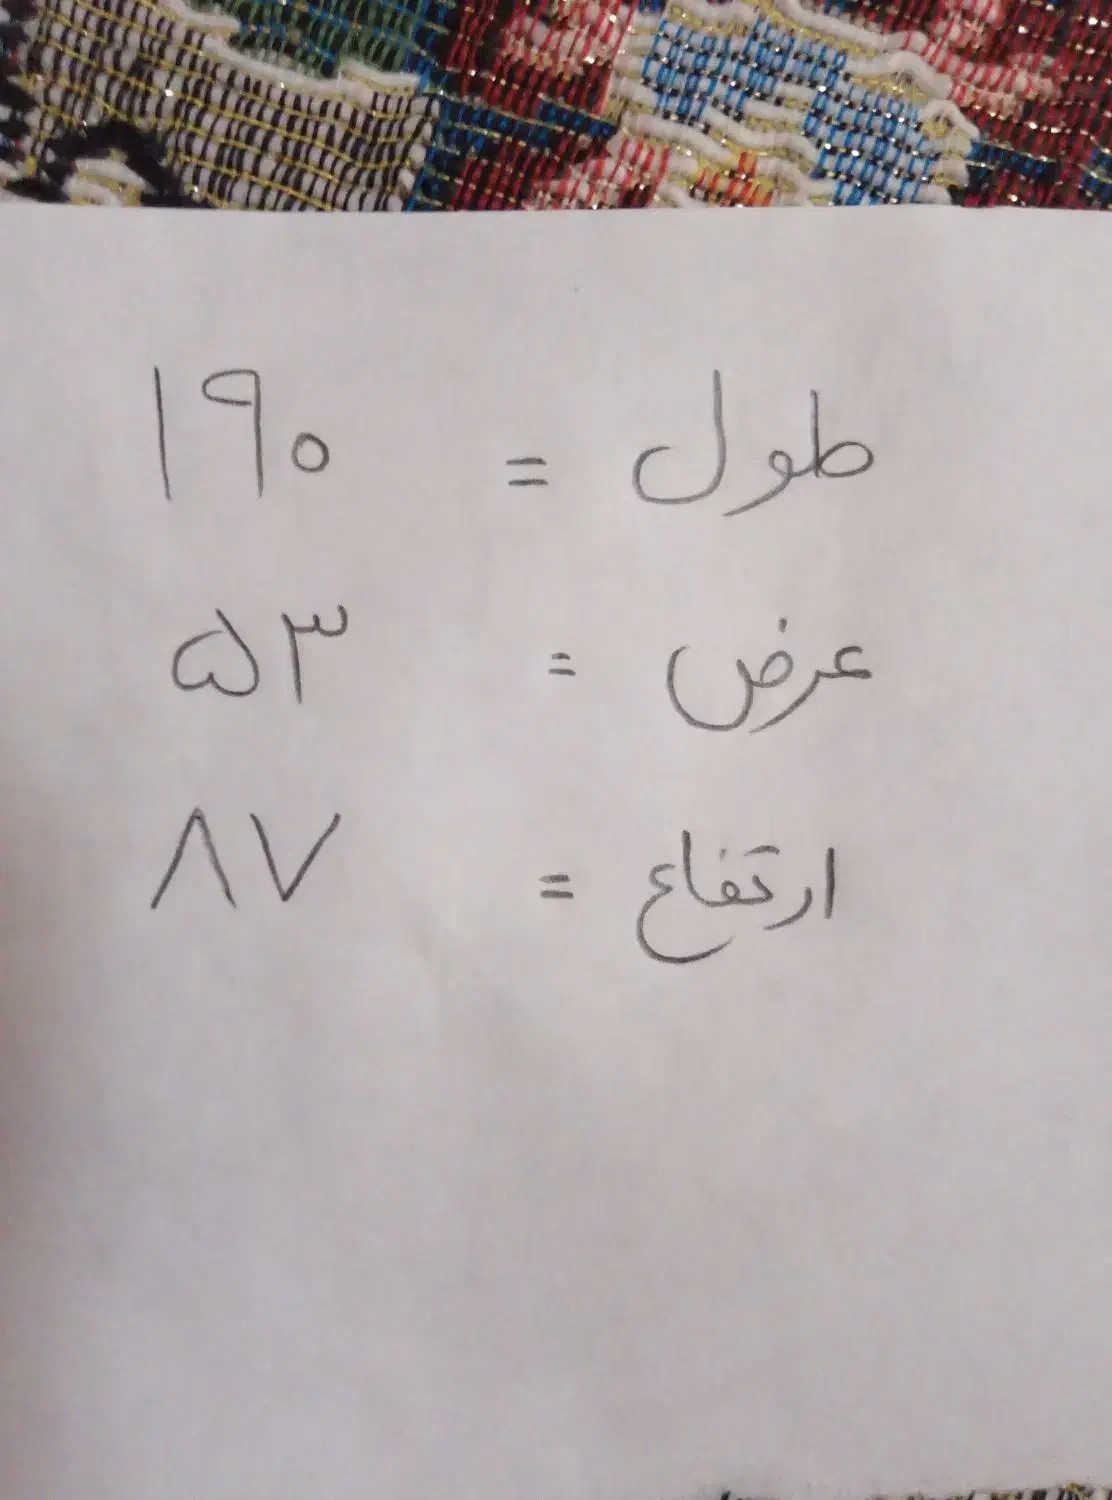 طول = ۱۹۰
عرض = ۵۳
ارتفاع = ۸۷